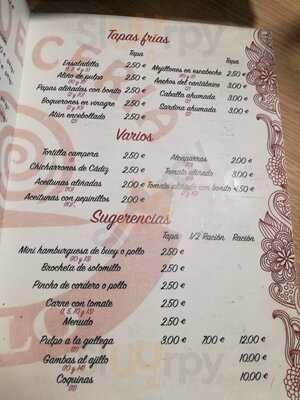 Tapas frías
Tapa
Ensaladilla 2,50 €
Aliño de pulpo 2,50 €
Papas aliñadas con bonito 2,50 €
Boquerones en vinagre 2,50 €
Atún encebollado 2,50 €
Tapa
Mejillones en escabeche 2,50 €
Anchoa del cantábrico 3,00 €
Caballa ahumada 3,00 €
Sardina ahumada 3,00 €
Varios
Tortilla campera 2,50 €
Chicharrones de Cádiz 2,50 €
Aceitunas aliñadas 2,00 €
Aceitunas con pepinillos 2,00 €
Alcaparras 2,00 €
Tomate aliñado 3,00 €
Tomate aliñado con bonito 4,50 €
Sugerencias
Tapa 1/2 Ración Ración
Mini hamburguesa de buey o pollo 2,50 €
Brocheta de solomillo 2,50 €
Pincho de cordero o pollo 2,50 €
Carne con tomate 2,50 €
Menudo 2,50 €
Pulpo a la gallega 3,00 € 7,00 € 12,00 €
Gambas al ajillo 10,00 €
Coquinas 10,00 €